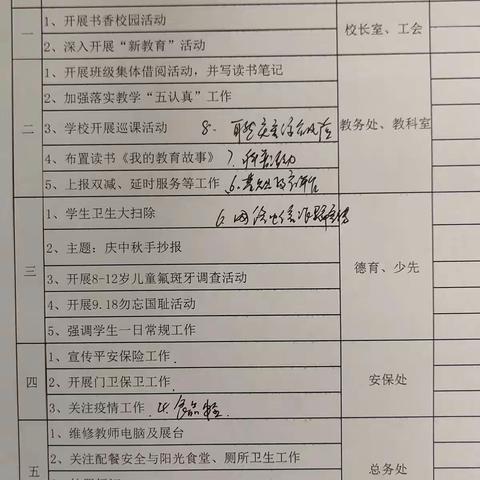 1、开展书香校园活动
一
校长室、工会
2、深入开展“新教育”活动
1、开展班级集体借阅活动，并写读书笔记
2、加强落实教学“五认真”工作
二
3、学校开展巡课活动 8.
教务处、教科室
4、布置读书《我的教育故事》 7.
5、上报双减、延时服务等工作 6.
1、学生卫生大扫除 6.
2、主题：庆中秋手抄报
三
3、开展8-12岁儿童氟斑牙调查活动
德育、少先
4、开展9.18勿忘国耻活动
5、强调学生一日常规工作
1、宣传平安保险工作
四
2、开展门卫保卫工作
安保处
3、关注疫情工作 4.
1、维修教师电脑及展台
五
2、关注配餐安全与阳光食堂、厕所卫生工作
总务处